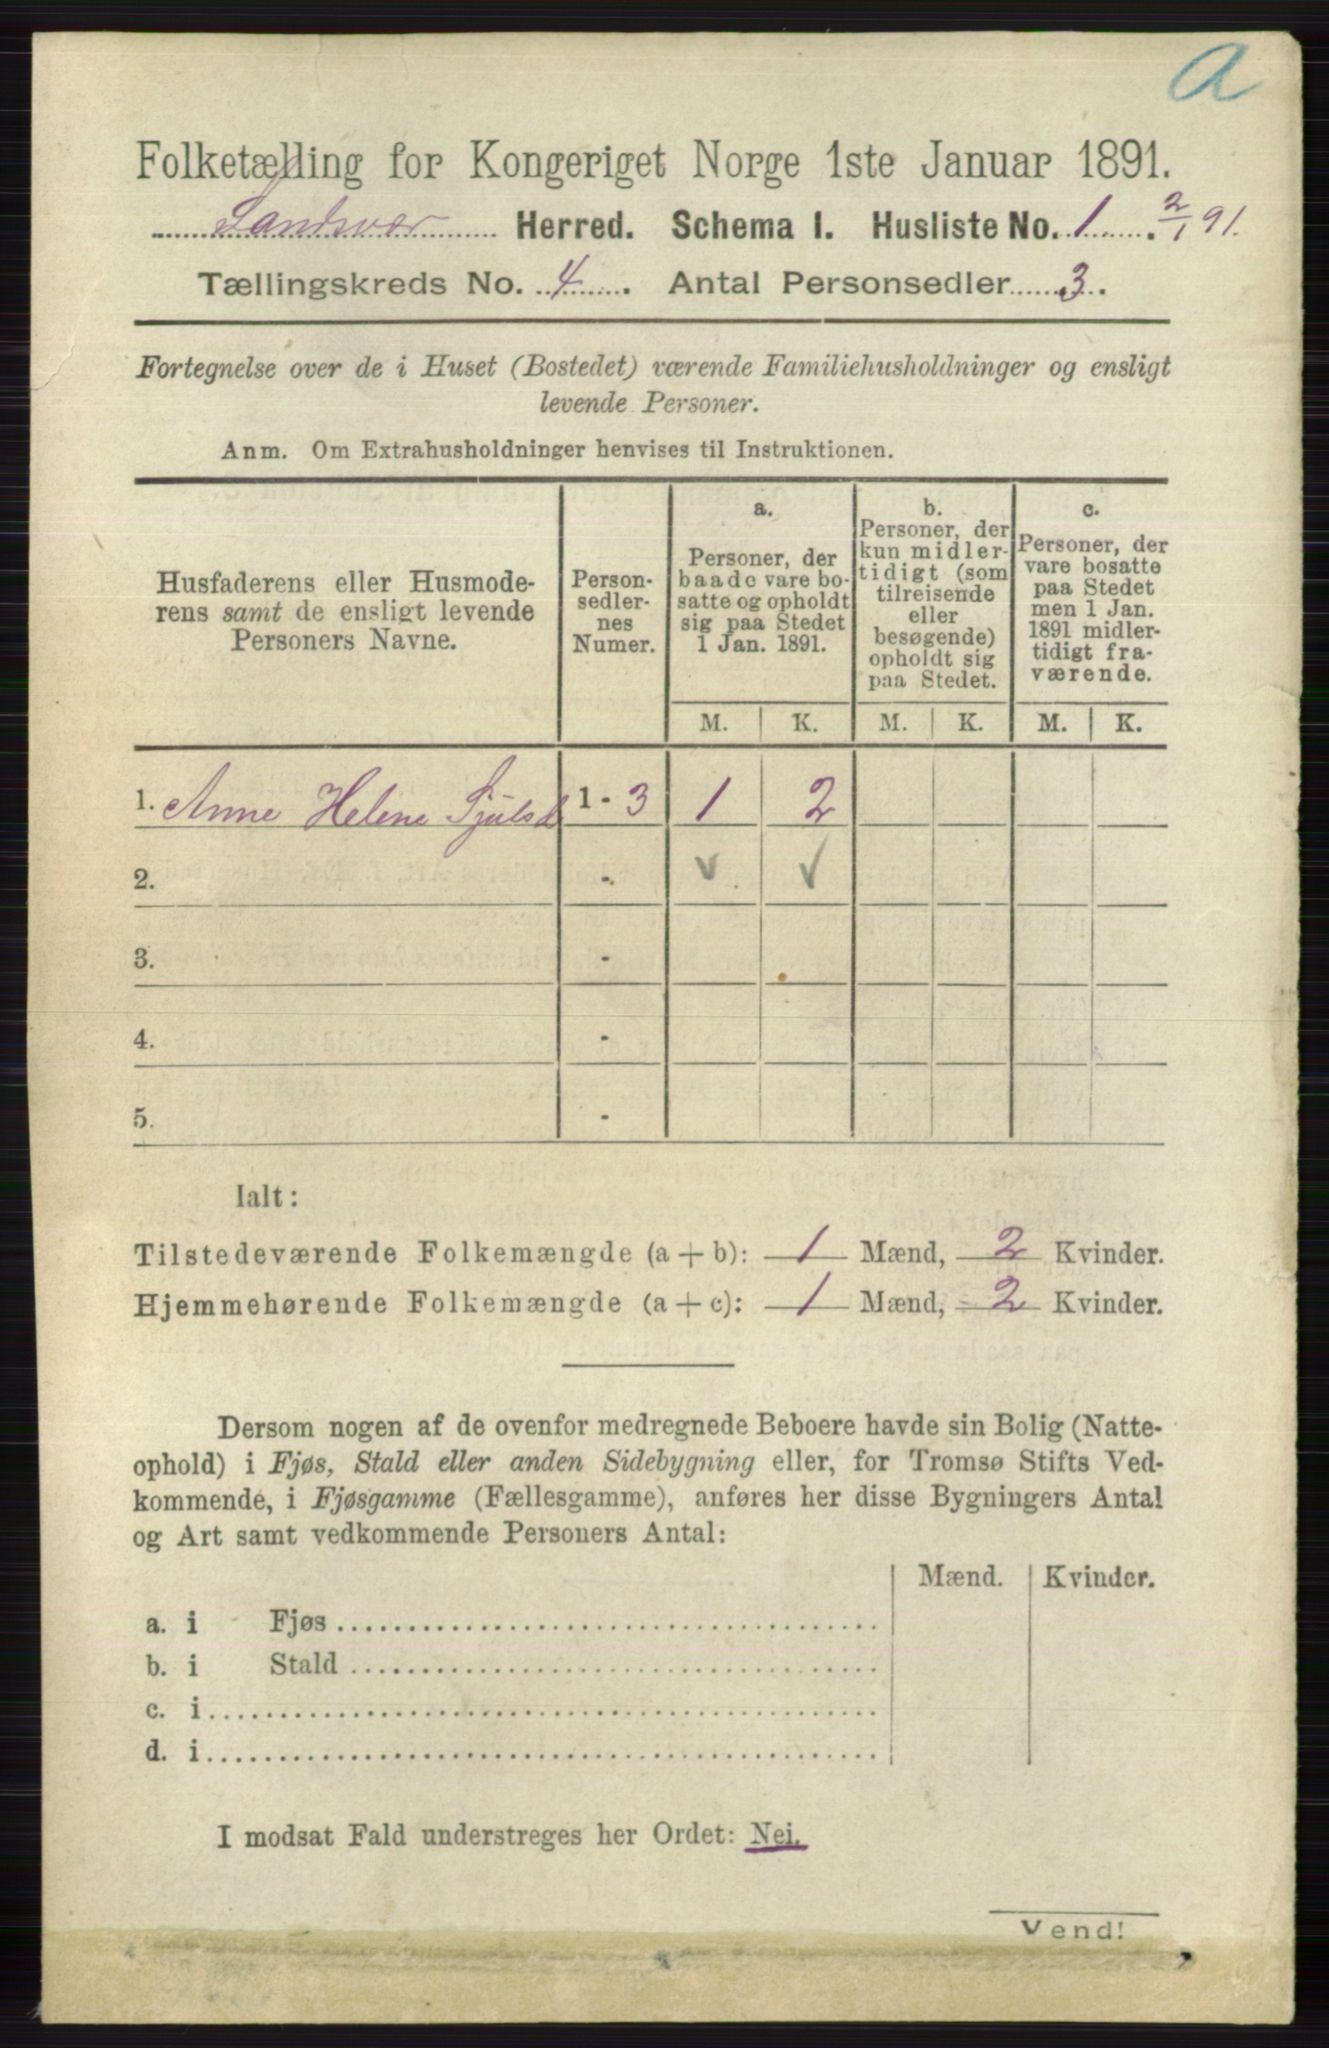 a
Folketælling for Kongeriget Norge 1ste Januar 1891.
Sandsvær Herred. Schema I. Husliste No. 1. 2/1 91.
Tællingskreds No. 4. Antal Personsedler 3.
Fortegnelse over de i Huset (Bostedet) værende Familiehusholdninger og ensligt
levende Personer.
Anm. Om Extrahusholdninger henvises til Instruktionen.
Husfaderens eller Husmode-
rens samt de ensligt levende
Personers Navne.
Person-
sedler-
nes
Numer.
a.
Personer, der
baade vare bo-
satte og opholdt
sig paa Stedet
1 Jan. 1891.
b.
Personer, der
kun midler-
tidigt (som
tilreisende
eller
besøgende)
opholdt sig
paa Stedet.
c.
Personer, der
vare bosatte
paa Stedet
men 1 Jan.
1891 midler-
tidigt fra-
værende.
M. K. M. K. M. K.
1. Anne Helene Sjulsd 1 - 3 1 2
2. - ✓ ✓
3. -
4. -
5. -
Ialt:
Tilstedeværende Folkemængde (a + b): 1 Mænd, 2 Kvinder.
Hjemmehørende Folkemængde (a + c): 1 Mænd, 2 Kvinder.
Dersom nogen af de ovenfor medregnede Beboere havde sin Bolig (Natte-
ophold) i Fjøs, Stald eller anden Sidebygning eller, for Tromsø Stifts Ved-
kommende, i Fjøsgamme (Fællesgamme), anføres her disse Bygningers Antal
og Art samt vedkommende Personers Antal:
Mænd. Kvinder.
a. i Fjøs
b. i Stald
c. i
d. i
I modsat Fald understreges her Ordet: Nei.
Vend!